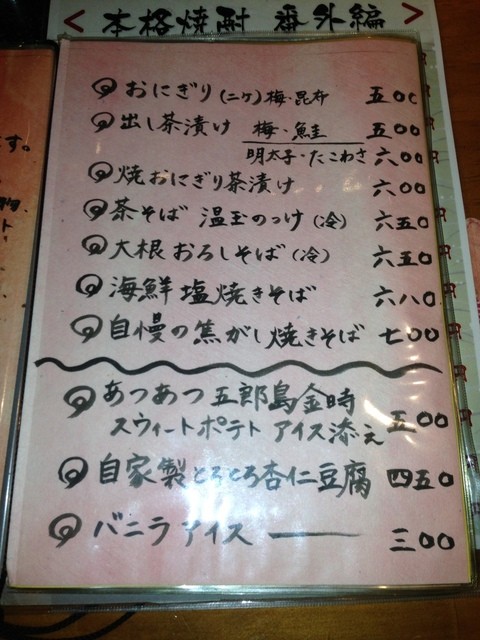 < 本格焼酎 番外編 >
おにぎり(二ケ)梅・昆布 五〇〇
出し茶漬け 梅・鮭 五〇〇
明太子・たこわさ 六〇〇
焼おにぎり茶漬け 六〇〇
茶そば 温玉のっけ(冷) 六五〇
大根おろしそば(冷) 六五〇
海鮮塩焼きそば 六八〇
自慢の焦がし焼きそば 七〇〇
あつあつ五郎島金時
スウィートポテト アイス添え 五〇〇
自家製とろとろ杏仁豆腐 四五〇
バニラアイス 三〇〇
す。